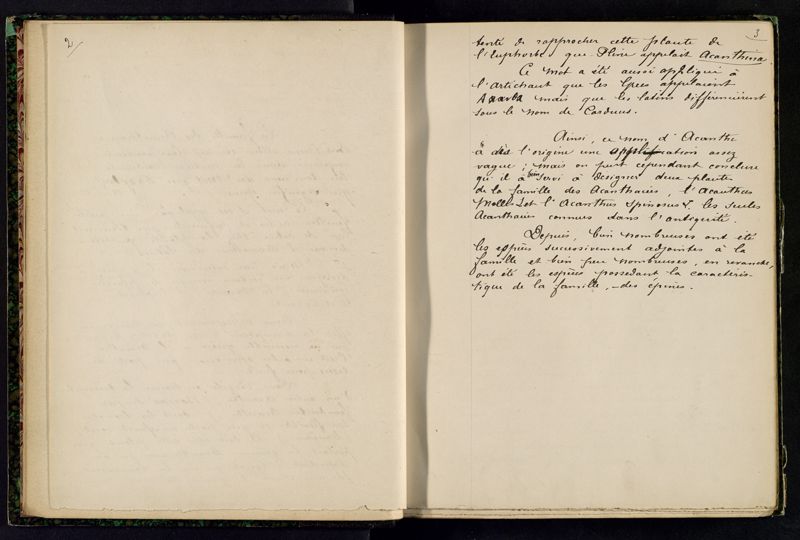 2
3
tenté de rapprocher cette plante de
l'Euphorbe que Pline appelait Acanthina.
Ce mot a été aussi appliqué à
l'artichaut que les Grecs appelaient
mais que les latins différencièrent
sous le nom de Carduus.
Ainsi, ce nom d'Acanthe
a dès l'origine une application assez
vague ; mais on peut cependant conclure
qu'il a bien servi à désigner deux plantes
de la famille des Acanthacées, l'Acanthus
Mollis et l'Acanthus Spinosus, les seules
Acanthacées connues dans l'antiquité.
Depuis, bien nombreuses ont été
les espèces successivement adjointes à la
famille et bien peu nombreuses, en revanche,
ont été les espèces possédant la caractéris-
tique de la famille, – des épines.